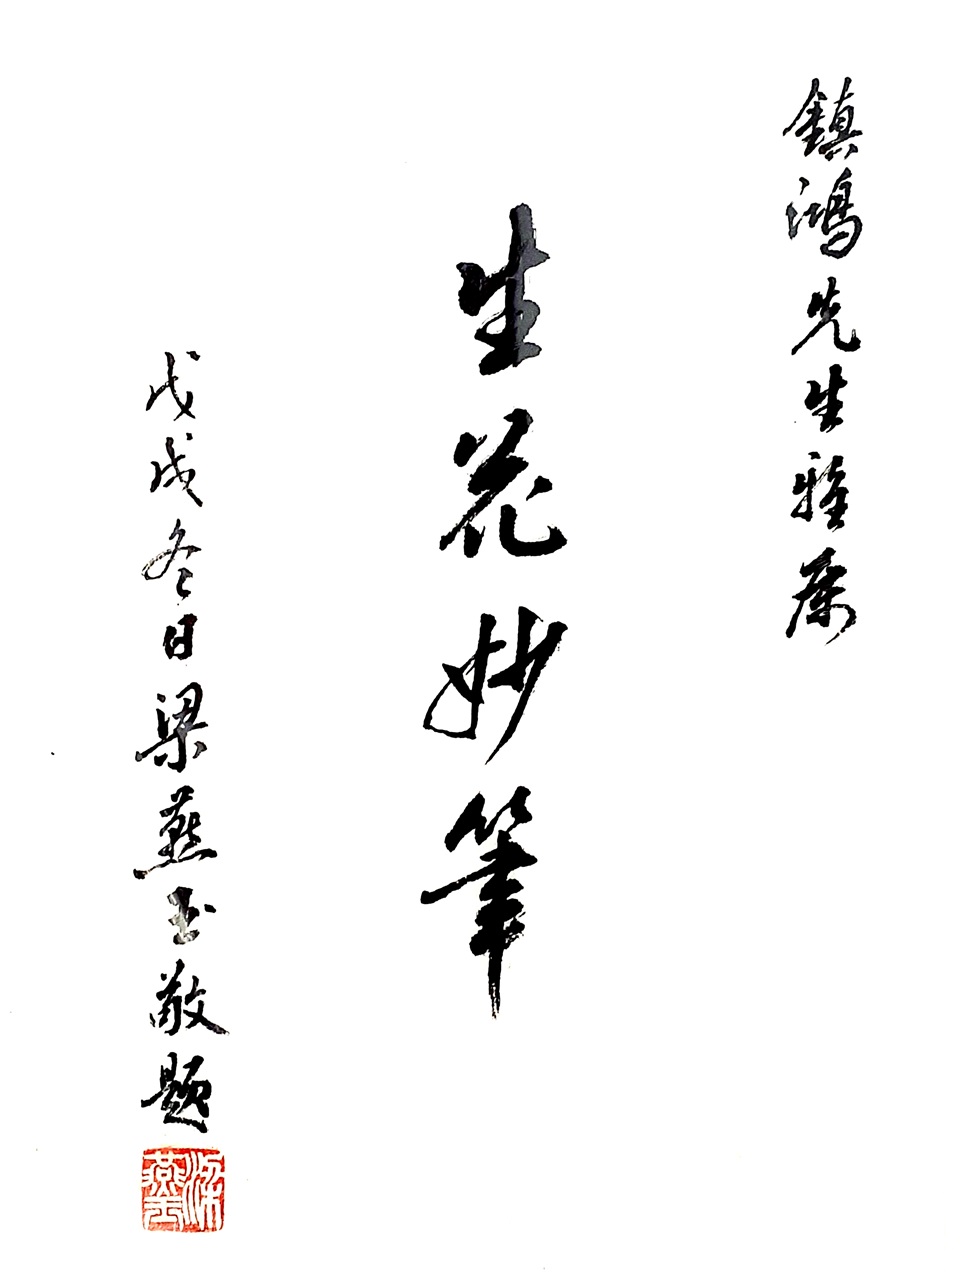 鎮鴻先生雅屬
生花妙筆
戊戌冬日梁燕玉敬題
梁燕玉